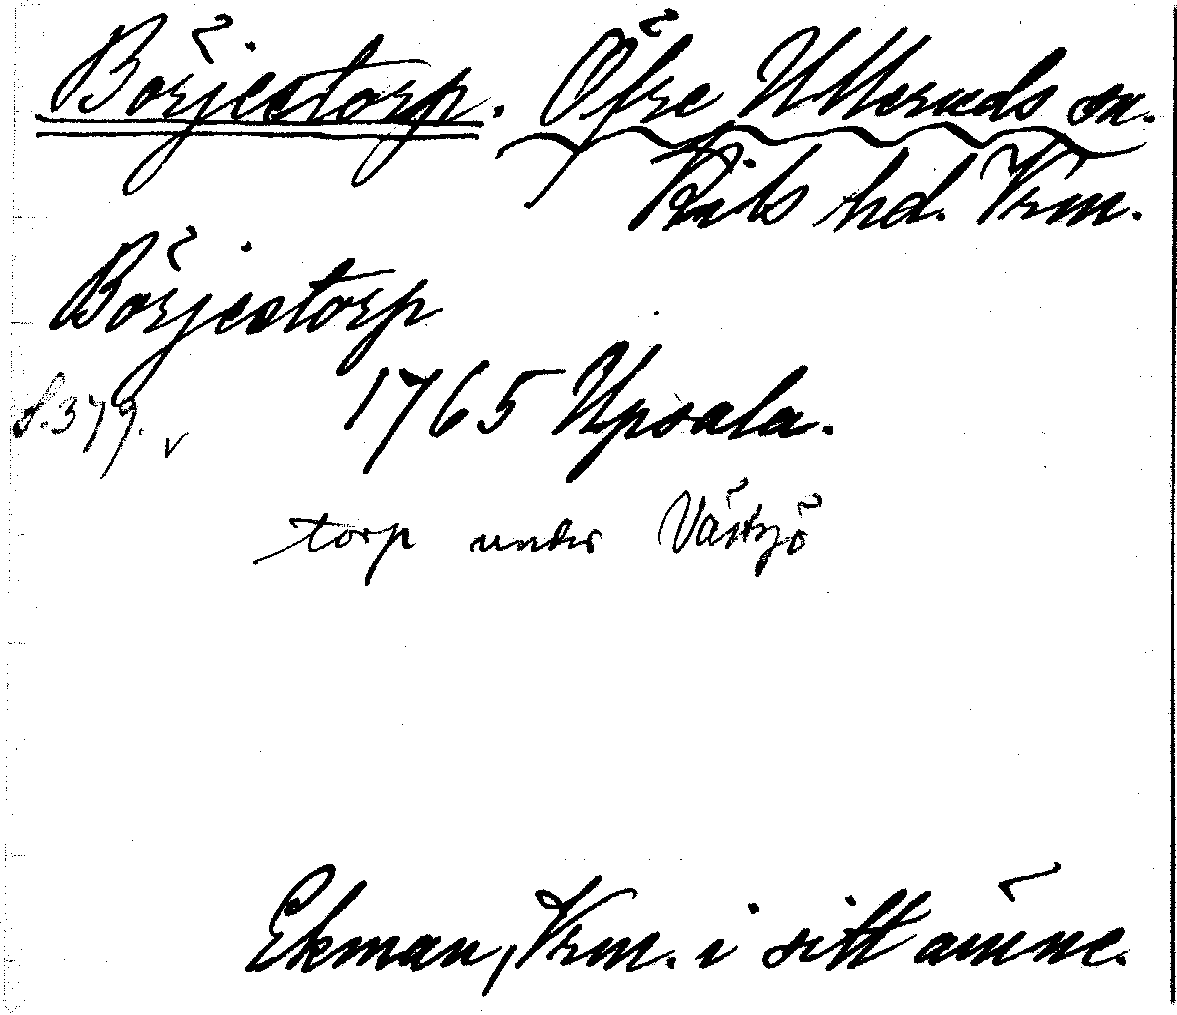 Börjestorp. Öfre Ulleruds sn.
Kils hd. Vrm.
Börjestorp
s. 379. v 1765 Upsala.
torp under Västsjö
Ekman, Vrm. i sitt ämne.